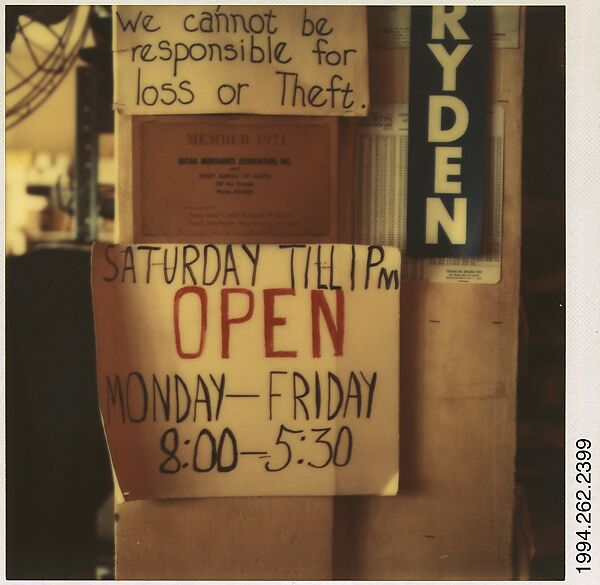 We cannot be
responsible for
loss or Theft.
RYDEN
MEMBER 1971
RETAIL MERCHANTS ASSOCIATION, INC.
and
CREDIT BUREAU OF AUSTIN
SATURDAY TILL 1 PM
OPEN
MONDAY—FRIDAY
8:00—5:30
1994.262.2399